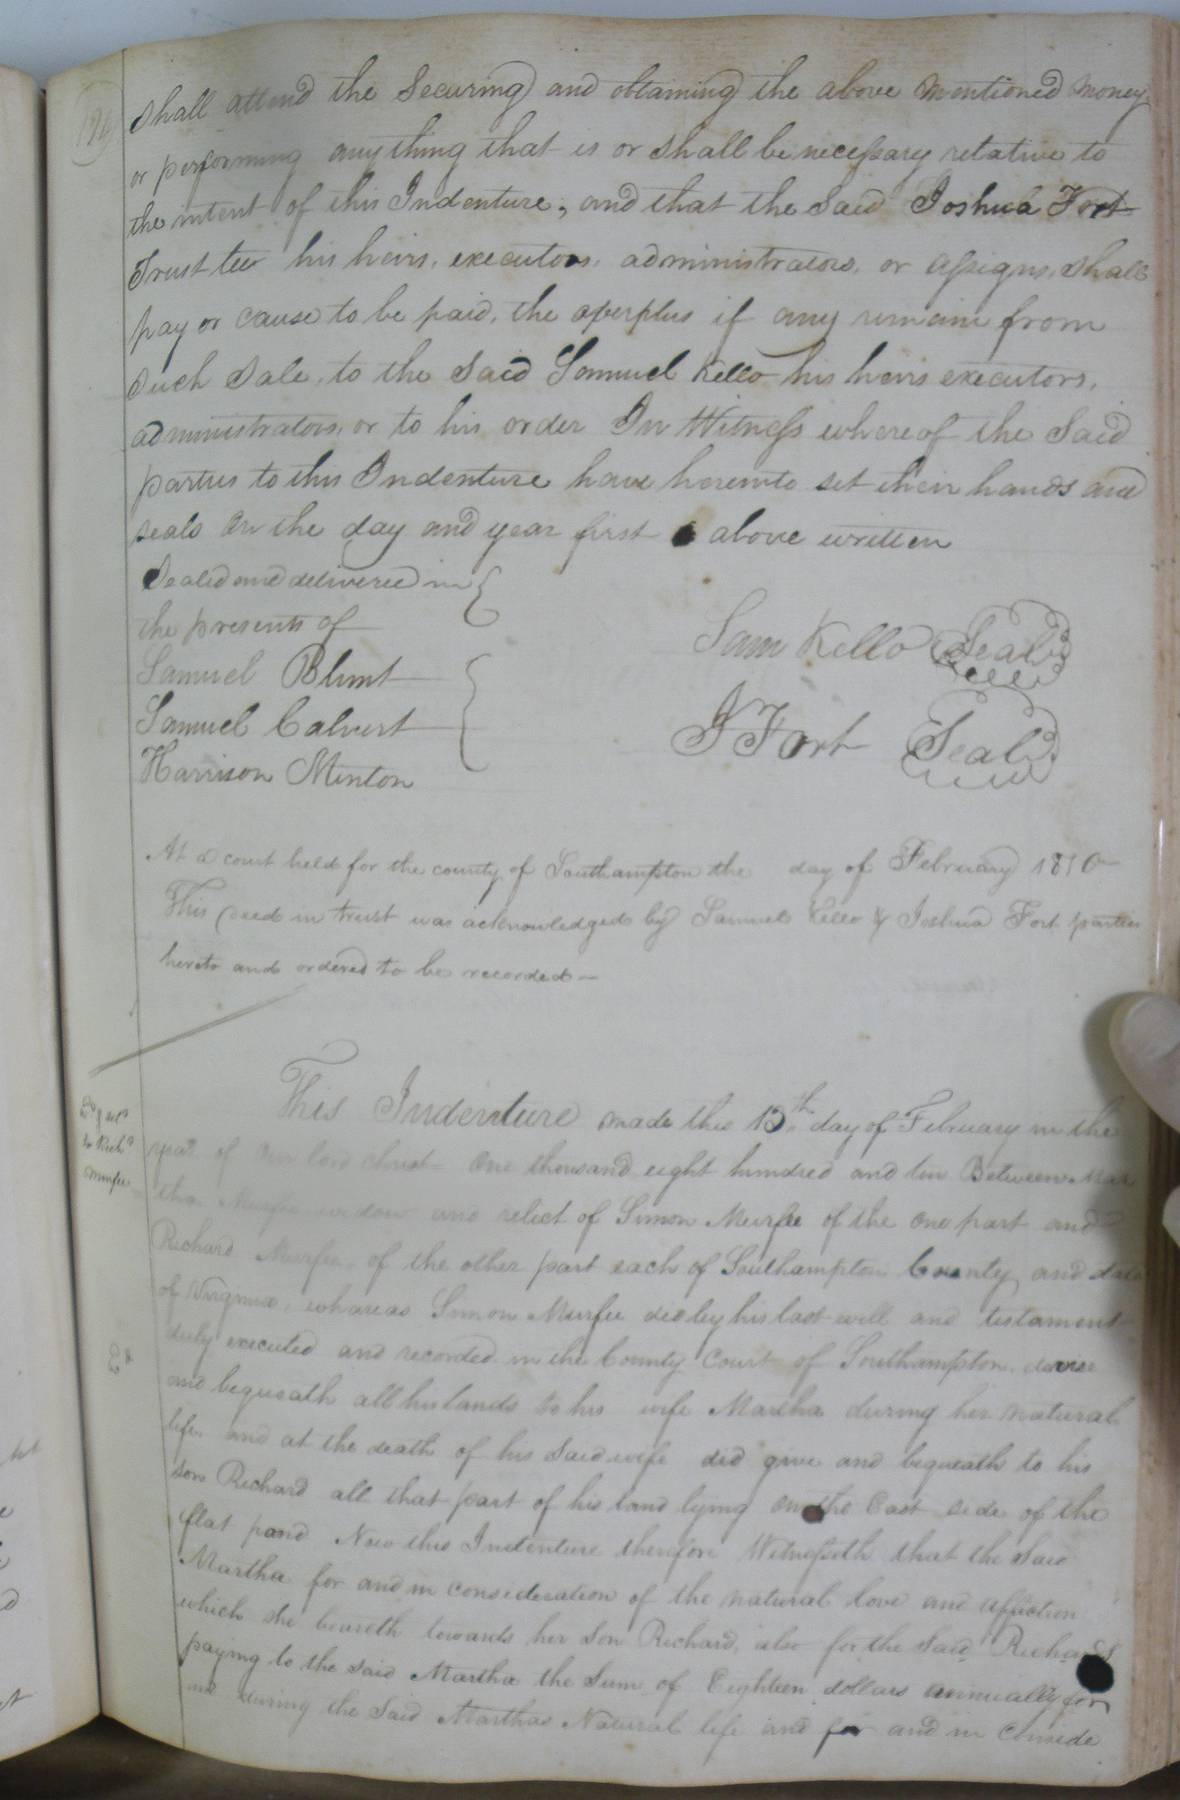 shall attend the Securing and obtaining the above mentioned money
or performing any thing that is or shall be necessary relative to
the intent of this Indenture, and that the Said Joshua Fort
Trust tee his heirs, executors, administrators, or assigns, shall
pay or cause to be paid, the overplus if any remain from
such Sale, to the Said Samuel Kello his heirs executors,
administrators, or to his order In Witness whereof the Said
parties to this Indenture have hereunto set their hands and
seals on the day and year first above written
Sealed and delivered in
the presents of
Sam Kello Seal
Samuel Blunt
Samuel Calvert
J Fort Seal
Harrison Minton
At a court held for the county of Southampton the day of February 1810
This deed in trust was acknowledged by Samuel Kello & Joshua Fort parties
hereto and ordered to be recorded
This Indenture made this 13th day of February in the
year of our lord christ One thousand eight hundred and ten Between Mar
tha Murfee widow and relict of Simon Murfee of the one part and
Richard Murfee of the other part each of Southampton County and
of Virginia, whareas Simon Murfee did by his last will and testament
duly executed and recorded in the County Court of Southampton devise
and bequeath all his lands to his wife Martha during her natural
life and at the death of his Said wife did give and bequeath to his
son Richard all that part of his land lying on the East side of the
flat pond Now this Indenture therefore Witnesseth that the Said
Martha for and in consideration of the natural love and affection
which she beareth towards her son Richard, also for the Said Richard
paying to the said Martha the Sum of Eighteen dollars annually for
and during the Said Marthas Natural life and for and in Conside